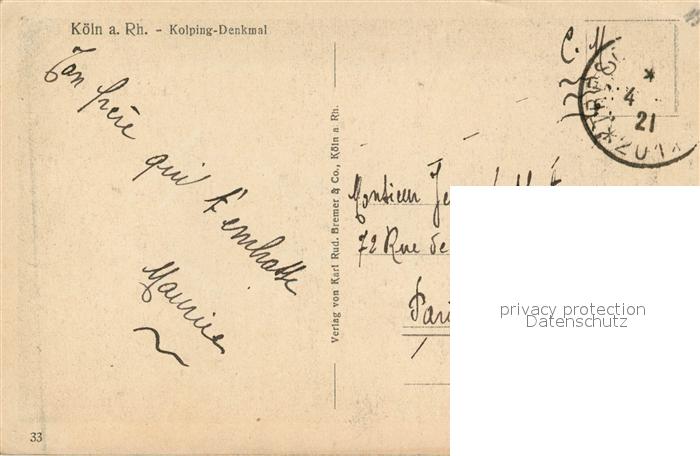 Köln a. Rh. - Kolping-Denkmal
Ton frère
qui t'embrasse
Maurice
Verlag von Karl Rud. Bremer & Co., Köln a. Rh.
C. M.
*
4
21
Monsieur
72 Rue de
privacy protection
Datenschutz
33